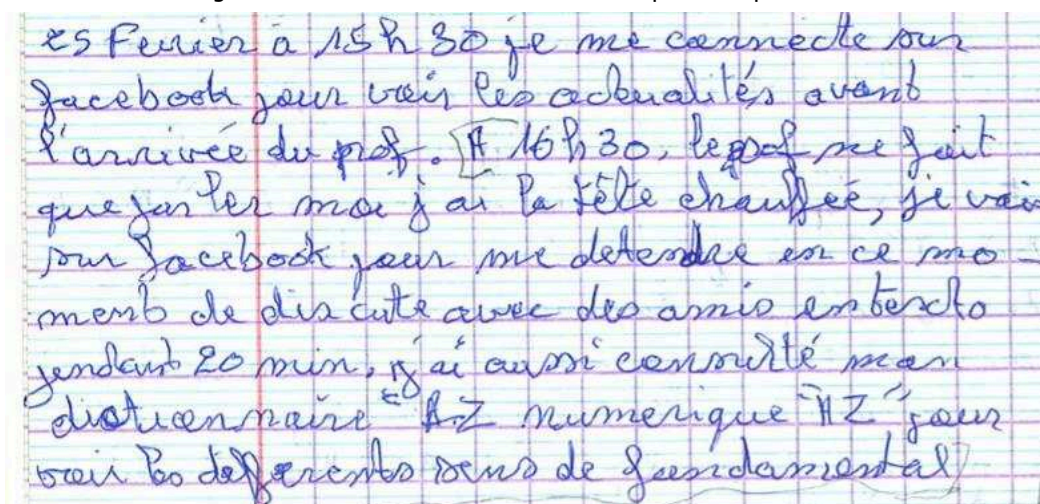 25 Fevrier à 15h30 je me connecte sur
facebook pour voir les actualités avant
l'arrivée du prof. [A 16h30, le prof ne fait
que parler moi j'ai la tête chauffée, je vais
sur facebook pour me detendre en ce mo-
ment de discute avec des amis en texto
pendant 20 min, j'ai aussi consulté mon
dictionnaire A-Z numerique "AZ" pour
voir les differents sens de fondamental]